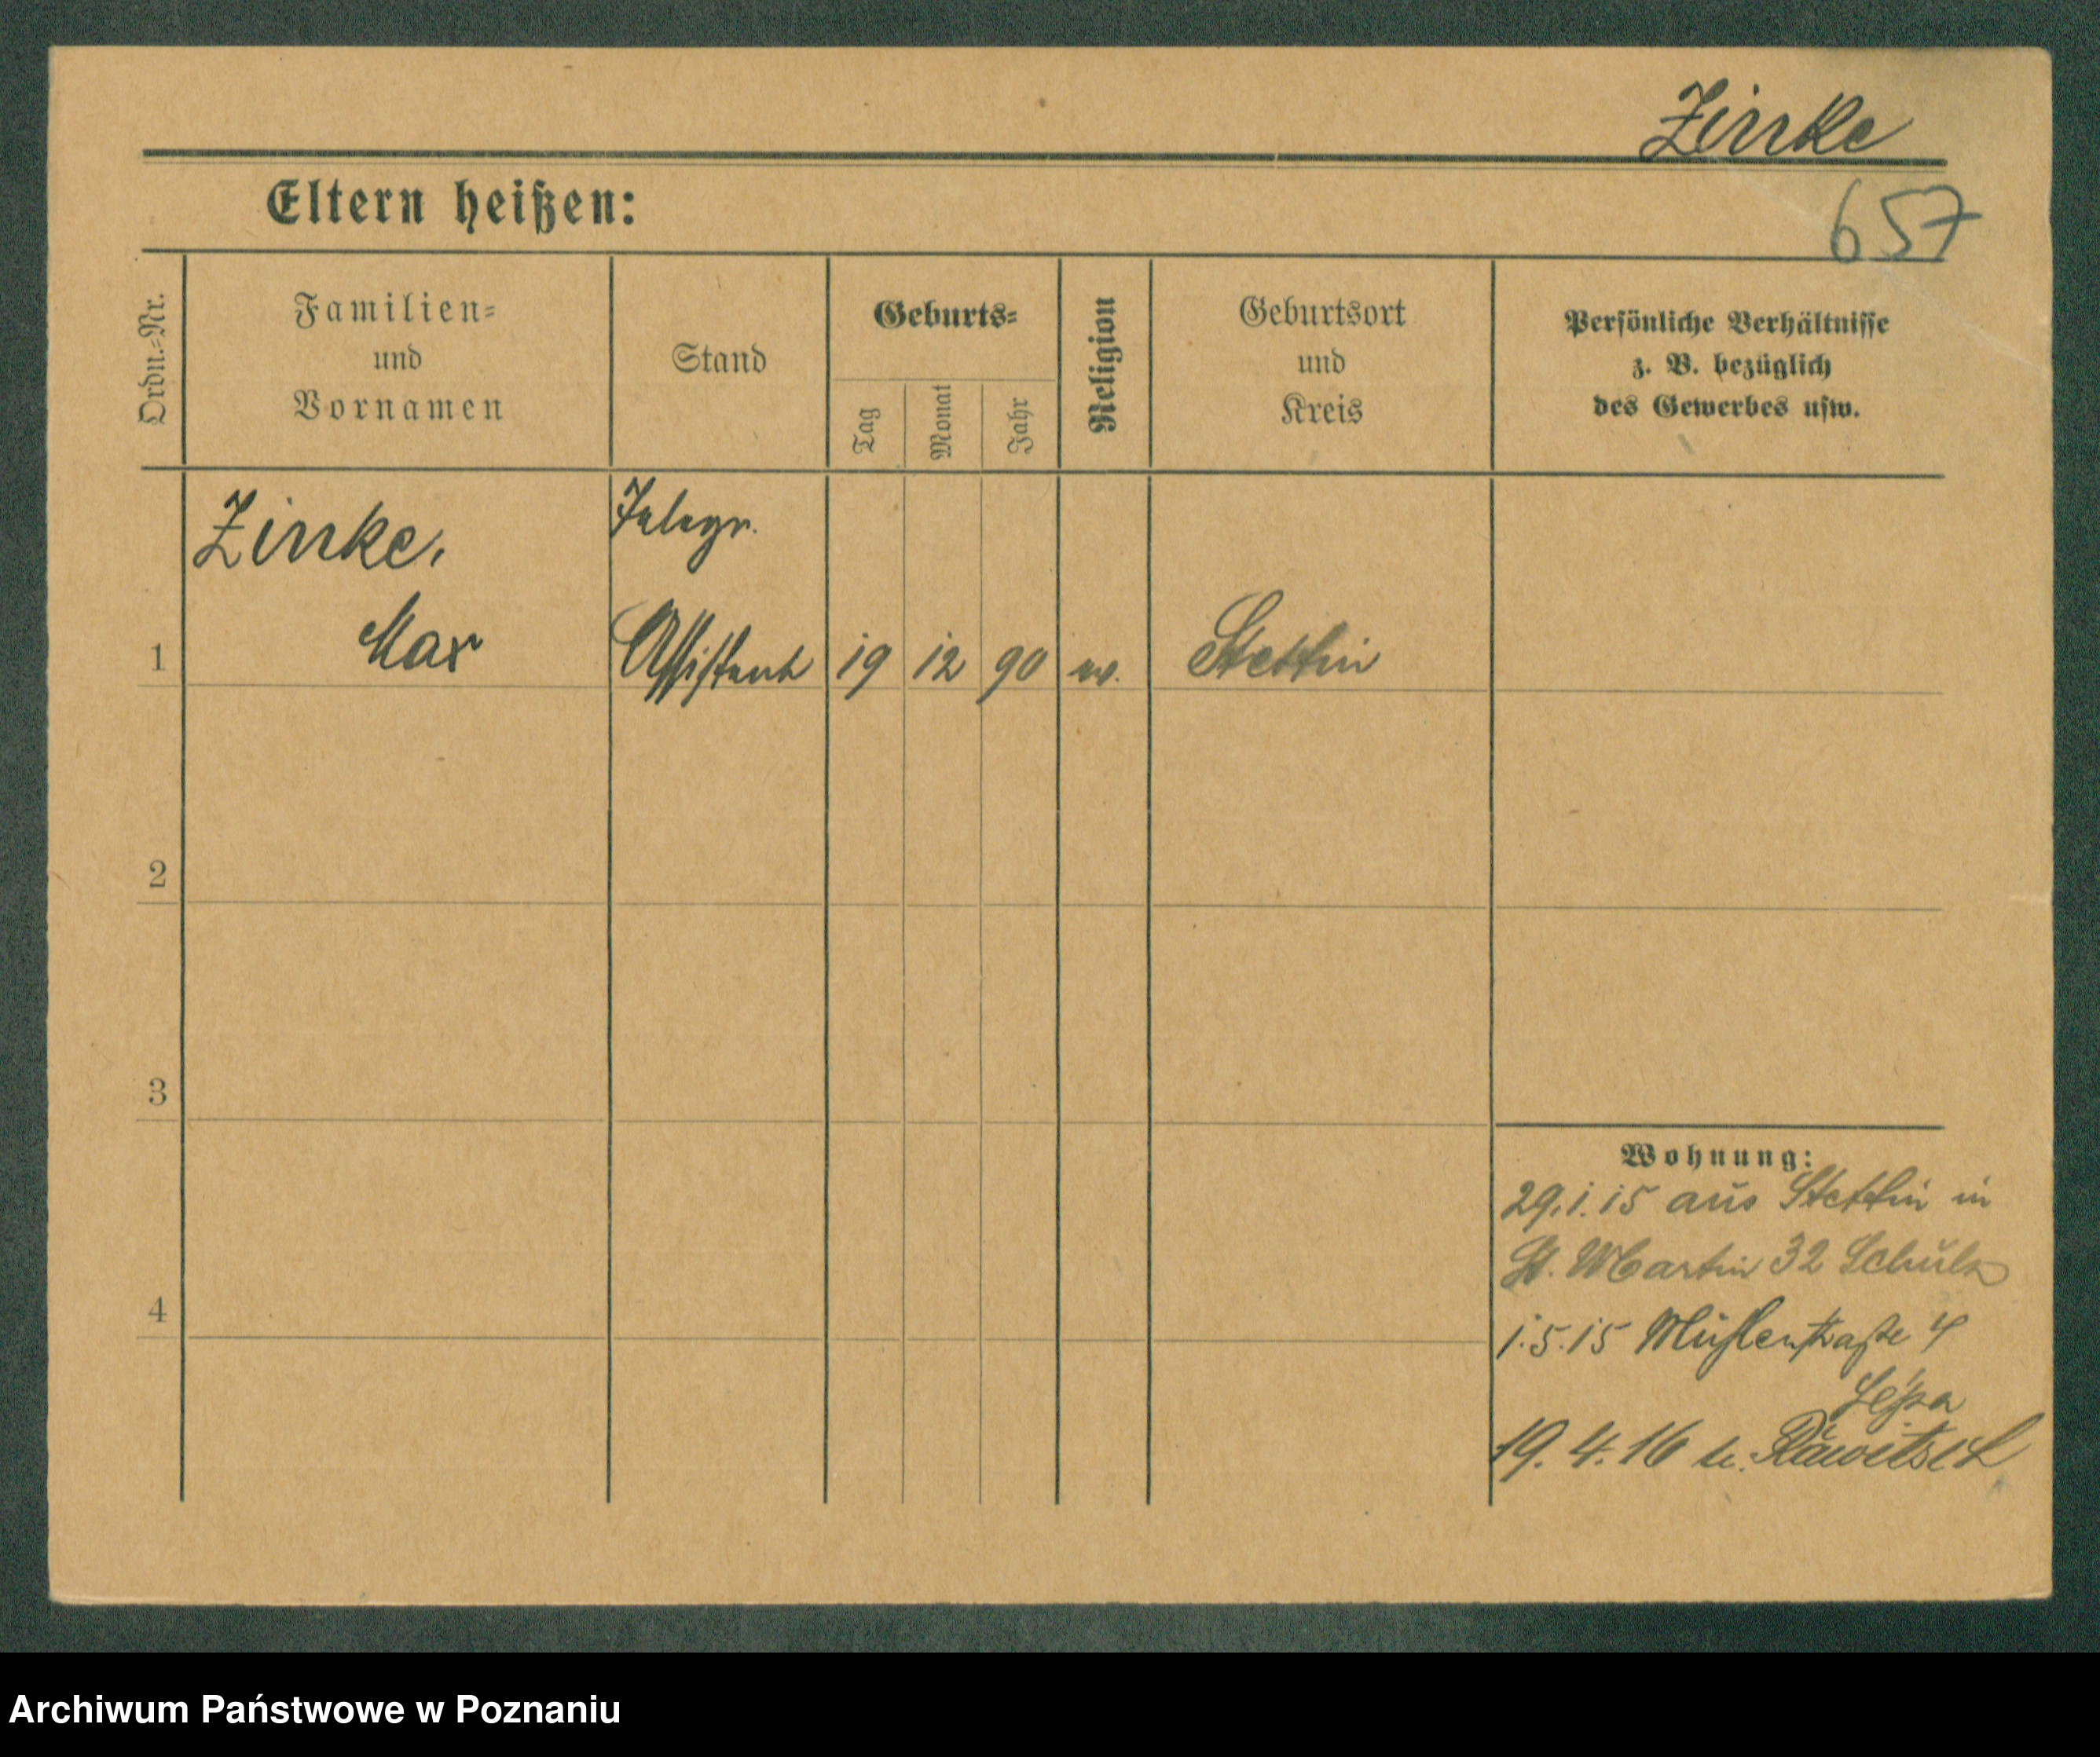 Zinke
Eltern heißen:
657
Ordn.=Nr.
Familien=
und
Vornamen
Stand
Geburts=
Tag
Monat
Jahr
Religion
Geburtsort
und
Kreis
Persönliche Verhältnisse
z. B. bezüglich
des Gewerbes usw.
Zinke,
Telegr.
1 Max Assistent 19 12 90 ev. Stettin
2
3
4
Wohnung:
29.1.15 aus Stettin in
St. Martin 32 Schulz
1.5.15 Mühlenstraße 4
19.4.16 n. Rawitsch
Archiwum Państwowe w Poznaniu